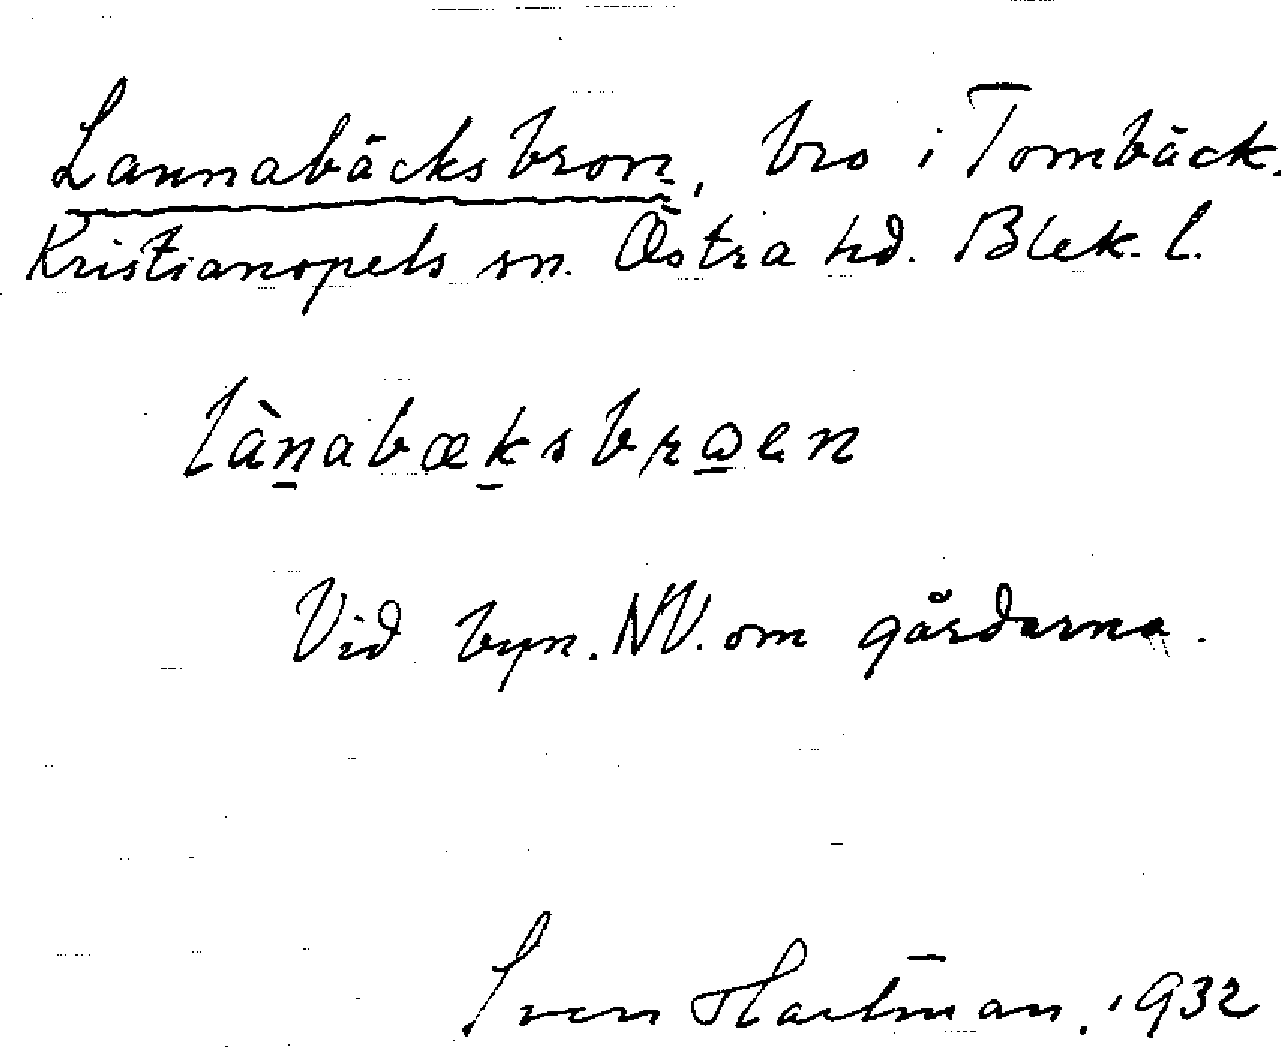 Lannabäcksbron, bro i Tombäck.
Kristianopels sn. Östra hd. Blek. l.
lànabæksbrωen
Vid byn. NV. om gårdarna.
Sven Hartman. 1932